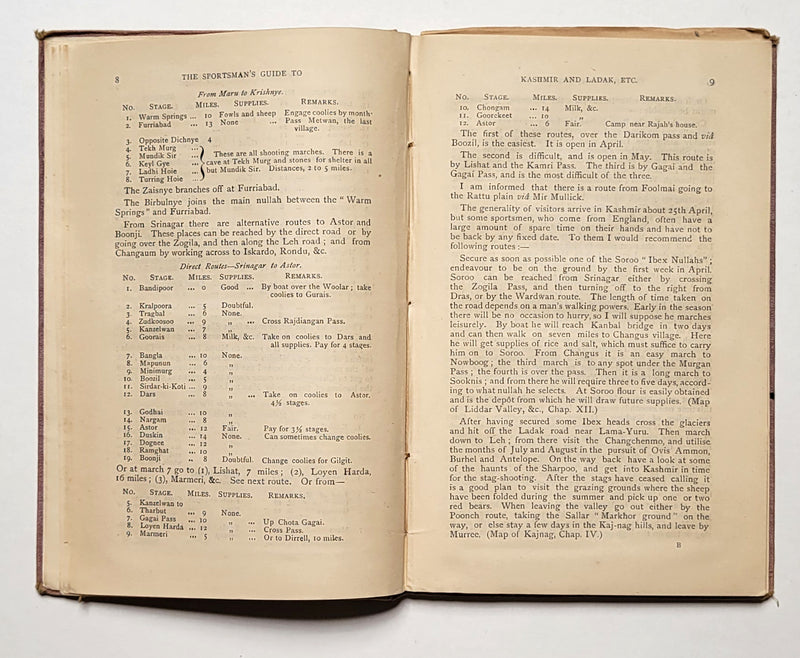 8
THE SPORTSMAN'S GUIDE TO
From Maru to Krishnye.
No. STAGE. MILES. SUPPLIES. REMARKS.
1. Warm Springs ... 10 Fowls and sheep Engage coolies by month.
2. Furriabad ... 13 None ... Pass Metwan, the last
village.
3. Opposite Dichnye 4
4. Tekh Murg ...
5. Mundik Sir ... These are all shooting marches. There is a
6. Keyl Gye ... cave at Tekh Murg and stones for shelter in all
7. Ladhi Hoie ... but Mundik Sir. Distances, 2 to 5 miles.
8. Turring Hoie ...
The Zaisnye branches off at Furriabad.
The Birbulnye joins the main nullah between the "Warm
Springs" and Furriabad.
From Srinagar there are alternative routes to Astor and
Boonji. These places can be reached by the direct road or by
going over the Zogila, and then along the Leh road; and from
Changaum by working across to Iskardo, Rondu, &c.
Direct Routes—Srinagar to Astor.
No. STAGE. MILES. SUPPLIES. REMARKS.
1. Bandipoor ... 0 Good ... By boat over the Woolar; take
coolies to Gurais.
2. Kralpoora ... 5 Doubtful.
3. Tragbal ... 6 None.
4. Zudkoosoo ... 9 „ ... Cross Rajdiangan Pass.
5. Kanzelwan ... 7 „
6. Goorais ... 8 Milk, &c. Take on coolies to Dars and
all supplies. Pay for 4 stages.
7. Bangla ... 10 None.
8. Mapunun ... 6 „
9. Minimurg ... 4 „
10. Boozil ... 5 „
11. Sirdar-ki-Koti ... 9 „
12. Dars ... 8 „ ... Take on coolies to Astor.
4½ stages.
13. Godhai ... 10 „
14. Nargam ... 8 „
15. Astor ... 12 Fair. Pay for 3½ stages.
16. Duskin ... 14 None. Can sometimes change coolies.
17. Dognee ... 12 „
18. Ramghat ... 10 „
19. Boonji ... 8 Doubtful. Change coolies for Gilgit.
Or at march 7 go to (1), Lishat, 7 miles; (2), Loyen Harda,
16 miles; (3), Marmeri, &c. See next route. Or from—
No. STAGE. MILES. SUPPLIES. REMARKS.
5. Kanzelwan to
6. Tharbut ... 9 None.
7. Gagai Pass ... 10 „ ... Up Chota Gagai.
8. Loyen Harda ... 12 „ ... Cross Pass.
9. Marmeri ... 5 „ ... Or to Dirrell, 10 miles.
KASHMIR AND LADAK, ETC. 9
No. STAGE. MILES. SUPPLIES. REMARKS.
10. Chongam ... 14 Milk, &c.
11. Goorckeet ... 10 „
12. Astor ... 6 Fair. Camp near Rajah's house.
The first of these routes, over the Darikom pass and viâ
Boozil, is the easiest. It is open in April.
The second is difficult, and is open in May. This route is
by Lishat and the Kamri Pass. The third is by Gagai and the
Gagai Pass, and is the most difficult of the three.
I am informed that there is a route from Foolmai going to
the Rattu plain viâ Mir Mullick.
The generality of visitors arrive in Kashmir about 25th April,
but some sportsmen, who come from England, often have a
large amount of spare time on their hands and have not to
be back by any fixed date. To them I would recommend the
following routes:—
Secure as soon as possible one of the Soroo "Ibex Nullahs";
endeavour to be on the ground by the first week in April.
Soroo can be reached from Srinagar either by crossing
the Zogila Pass, and then turning off to the right from
Dras, or by the Wardwan route. The length of time taken on
the road depends on a man's walking powers. Early in the season
there will be no occasion to hurry, so I will suppose he marches
leisurely. By boat he will reach Kanbal bridge in two days
and can then walk on seven miles to Changus village. Here
he will get supplies of rice and salt, which must suffice to carry
him on to Soroo. From Changus it is an easy march to
Nowboog; the third march is to any spot under the Murgan
Pass; the fourth is over the pass. Then it is a long march to
Sooknis; and from there he will require three to five days, accord-
ing to what nullah he selects. At Soroo flour is easily obtained
and is the depôt from which he will draw future supplies. (Map
of Liddar Valley, &c., Chap. XII.)
After having secured some Ibex heads cross the glaciers
and hit off the Ladak road near Lama-Yuru. Then march
down to Leh; from there visit the Changchenmo, and utilise
the months of July and August in the pursuit of Ovis Ammon,
Burhel and Antelope. On the way back have a look at some
of the haunts of the Sharpoo, and get into Kashmir in time
for the stag-shooting. After the stags have ceased calling it
is a good plan to visit the grazing grounds where the sheep
have been folded during the summer and pick up one or two
red bears. When leaving the valley go out either by the
Poonch route, taking the Sallar "Markhor ground" on the
way, or else stay a few days in the Kaj-nag hills, and leave by
Murree. (Map of Kajnag, Chap. IV.)
B